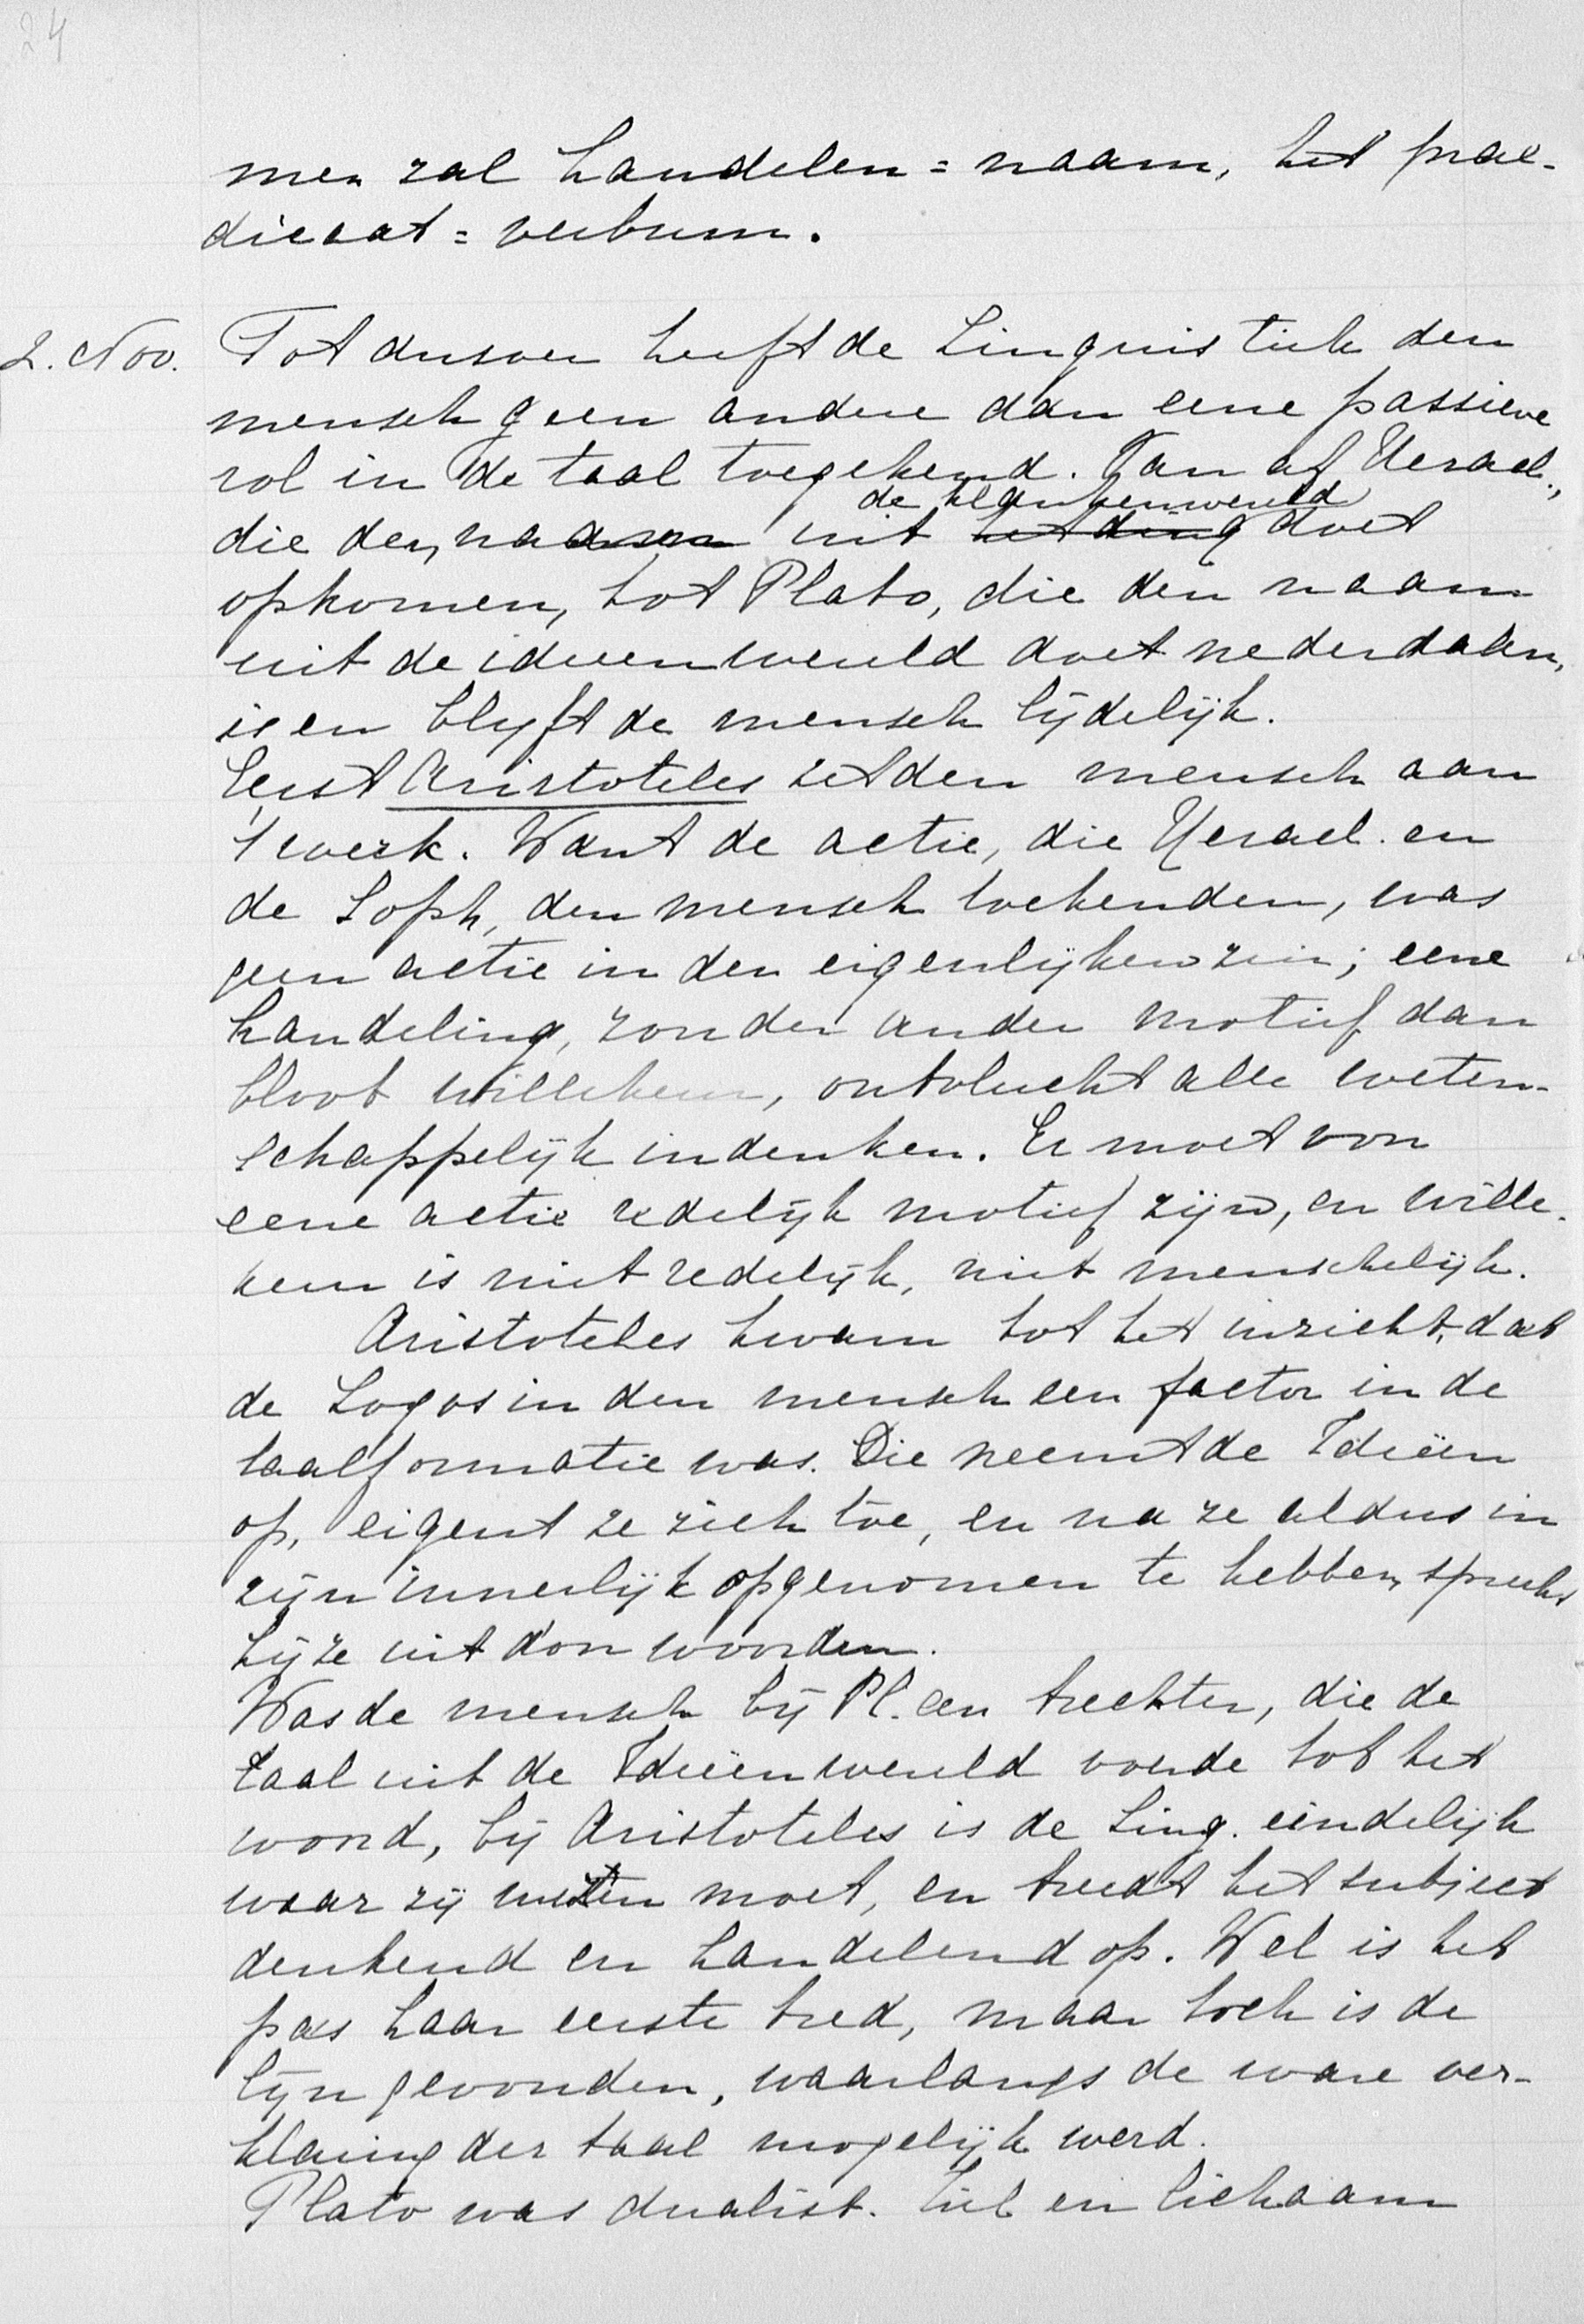 24
men zal handelen = naam, het prae-
dicaat = verbum.
2. Nov. Tot dusver heeft de Linguistiek den
mensch geen andere dan eene passieve
rol in de taal toegekend. Van af Heracl.,
de klankenwereld
die den naam uit het ding doet
opkomen, tot Plato, die den naam
uit de ideeenwereld doet nederdalen,
is en blyft de mensch lijdelijk.
Eerst Aristoteles zet den mensch aan
't werk. Want de actie, die Heracl. en
de Soph, den mensch toekenden, was
geen actie in den eigenlijken zin; eene
handeling, zonder ander motief dan
bloot willekeur, ontvlucht alle weten-
schappelijk indenken. Er moet voor
eene actie redelijk motief zijn, en wille-
keur is niet redelijk, niet menschelijk.
Aristoteles kwam tot het inzicht, dat
de Logos in den mensch een factor in de
taalformatie was. Die neemt de Ideeën
op, eigent ze zich toe, en na ze aldus in
zijn innerlijk opgenomen te hebben, spreekt
hij ze uit door woorden.
Was de mensch bij Pl. een trechter, die de
taal uit de Ideeënwereld voerde tot het
woord, bij Aristoteles is de Ling. eindelijk
waar zij wezen moet, en treedt het subject
denkend en handelend op. Wel is het
pas haar eerste tred, maar toch is de
lijn gevonden, waarlangs de ware ver-
klaring der taal mogelijk werd.
Plato was dualist. Ziel en lichaam